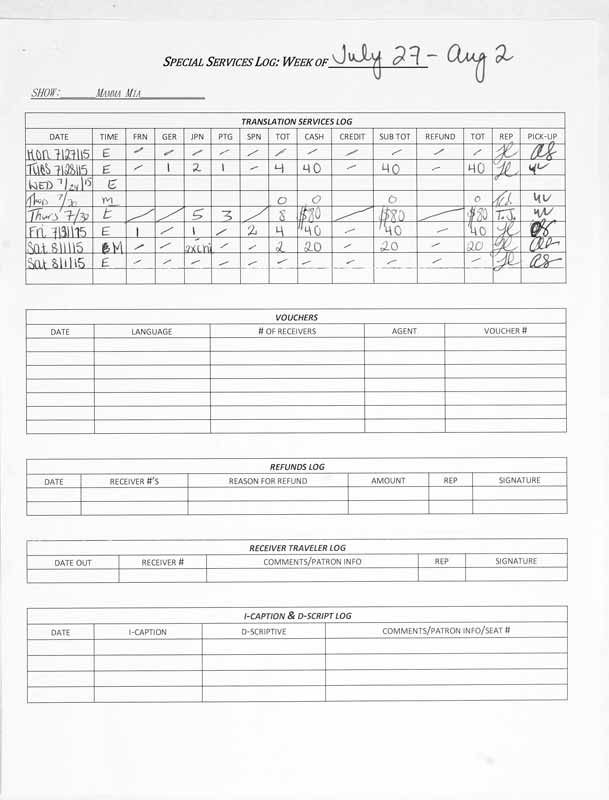 SPECIAL SERVICES LOG: WEEK OF July 27 - Aug 2
SHOW: MAMMA MIA
TRANSLATION SERVICES LOG
DATE TIME FRN GER JPN PTG SPN TOT CASH CREDIT SUB TOT REFUND TOT REP PICK-UP
Mon 7/27/15 E - - - - - - - - - - -
Tues 7/28/15 E - 1 2 1 - 4 40 - 40 - 40
WED 7/29/15 E
Thur 7/30 m 0 0 0 0 T.J.
Thurs 7/30 E 5 3 8 $80 $80 $80 T.J.
Fri 7/31/15 E 1 - 1 - 2 4 40 - 40 - 40
Sat 8/1/15 M - - 2xchi - - 2 20 - 20 - 20
Sat 8/1/15 E - - - - - - - - - - - as
VOUCHERS
DATE LANGUAGE # OF RECEIVERS AGENT VOUCHER #
REFUNDS LOG
DATE RECEIVER #'S REASON FOR REFUND AMOUNT REP SIGNATURE
RECEIVER TRAVELER LOG
DATE OUT RECEIVER # COMMENTS/PATRON INFO REP SIGNATURE
I-CAPTION & D-SCRIPT LOG
DATE I-CAPTION D-SCRIPTIVE COMMENTS/PATRON INFO/SEAT #